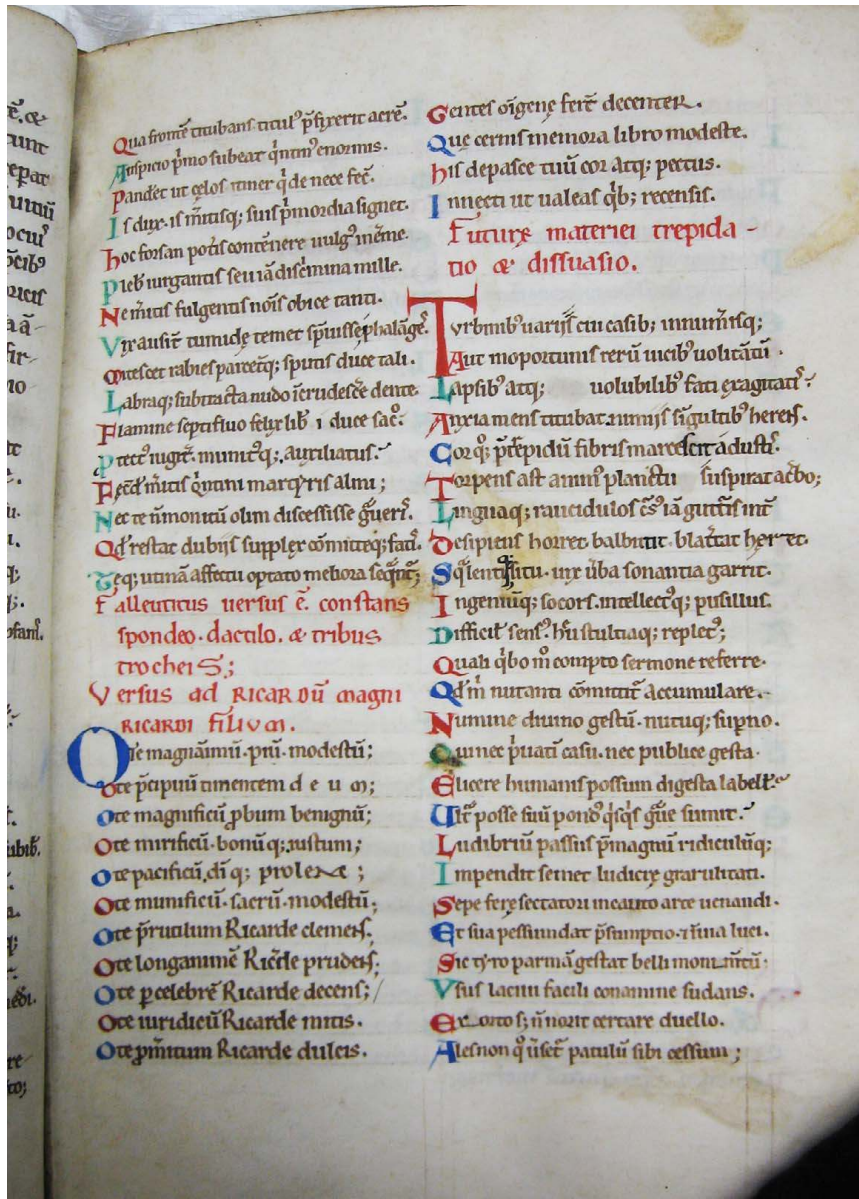 Qua fronte titubans titulꝰ p̄fixerit acrē.
Auspicio p̍mo subeat q̍ntinꝰ enormis.
Pandet ut celos itiner q̍ de nece fec̄.
Is dux is mītisq; suis p̍mordia signet.
hoc forsan potis contēnere uulgꝰ inerme.
Pleb iurgantis seu iā discrimina mille.
Ne mītis fulgentis nōis obice tanti.
Vix ausit tumide temet
Mitescet rabies parcetq; sputis duce tali.
Labraq; subtracta nudo
Flamine septifluo felix lib̄ i duce sac̄o.
Ptectꝰ uiget munitꝰq; auxiliatus.
mītis q̍ntini martyris almi;
Nec te n̄ monitū olim discessisse
Qd̄ restat dubijs supplex cōmitteq; fatis.
Teq; utinā affectu optato meliora
Falleuticus uersus ē constans
spondeo. dactilo. & tribus
trocheis;
Versus ad RICARDŪ magni
RICARDI FILIVM.
Ote magnāimū. piū. modestū;
Ote p̄cipuū timentem deum;
Ote magnificū ꝓbum benignū;
Ote mirificū. bonūq; iustum;
Ote pacificū, dīq; prolem;
Ote munificū. sacrū. modestū;
Ote p̄rutilum Ricarde clemens.
Ote longanimē Ricarde prudens;
Ote ꝑcelebrē Ricarde decens;
Ote iuridicū Ricarde mitis.
Ote Ricarde dulcis.
Gentes oīgene fert decenter.
Que cernis memora libro modeste.
his depasce tuū cor atq; pectus.
Inuecti ut ualeas q̍b; recensis.
Future materiei trepida-
tio & dissuasio.
Turbinibꝰ uarijs cui casib; innumīsq;
Aut inoportunis rerū uicibꝰ uolitātū.
Lapsibꝰ atq; uolubilibꝰ fati exagitatꝰ
Anxia mens titubat nimijs singultibꝰ herens.
Corq; p̄trepidū fibris marcescit adustis.
Torpens ast animꝰ planctu suspirat ac̄bo;
Linguaq; rancidulos iā gutt̄is int̄
Desipiens horret. balbutit. blat̄at herret.
uix u̅ba sonantia garrit.
Ingeniūq; socors. intellectꝰq; pusillus.
Difficil̄ sensꝰ. stultitiaq; replecꝰ;
Quali q̍bo m̊ compto sermone referre.
Qd̄ m̍ nutanti cōmittit accumulare.
Numine diuino gestū. nutuq; suꝑno.
Qui nec p̍uati casū. nec publice gesta.
Elicere humanis possum digesta labell̄.
Ult̄ posse suū pondꝰ q̍sq̍s g̍ue sumit.
Ludibriū passus p̄magnū ridiculūq;
Impendit semet ludicre garrulitati.
Sepe fere sectator incauto arte uenandi.
Et sua pessundat p̄sumptio luci.
Sic tyro parmā gestat belli
Vsus lacuu facili conamine sudans.
Exorto s; n̄ norit certare duello.
Ales non patulū sibi cessum;